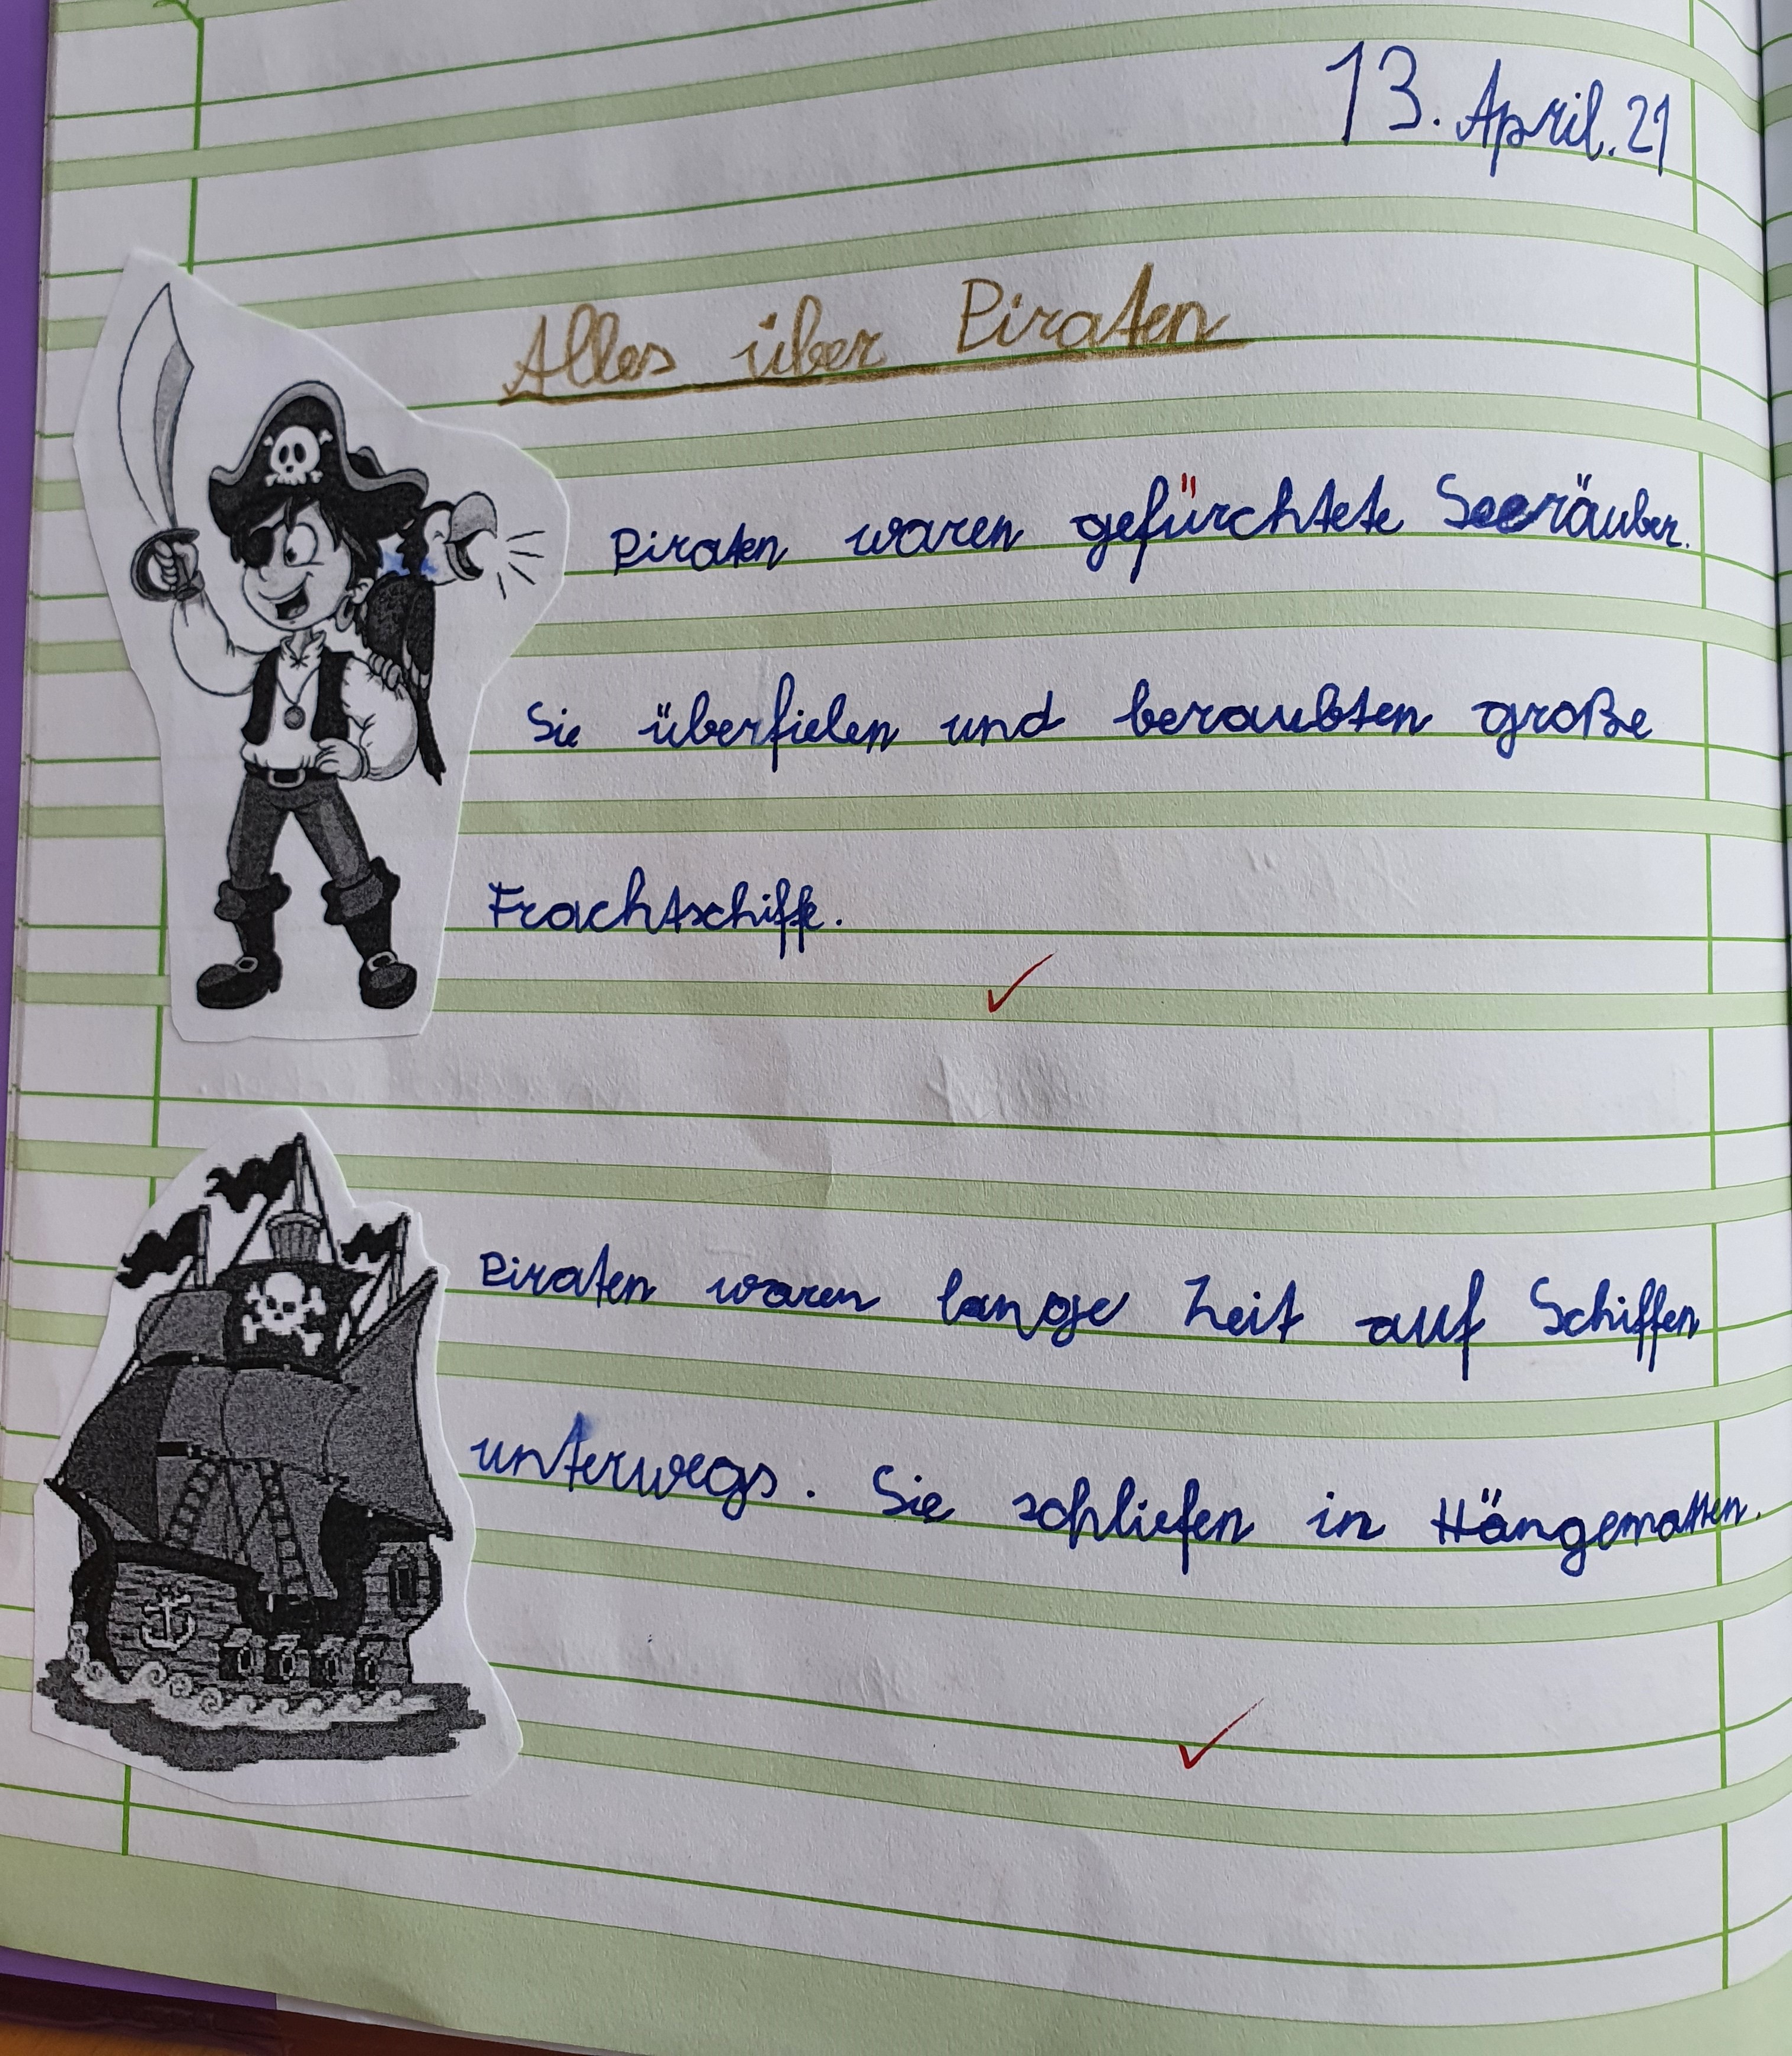 13. April. 21
Alles über Piraten
Piraten waren gefürchtete Seeräuber.
Sie überfielen und beraubten große
Frachtschiffe.
Piraten waren lange Zeit auf Schiffen
unterwegs. Sie schliefen in Hängematten.